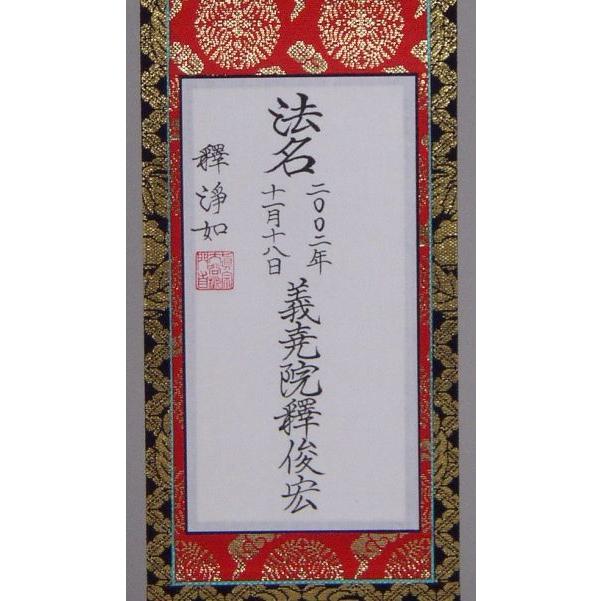 法名
二〇〇二年
十一月十八日
義尭院釋俊宏
釋淨如